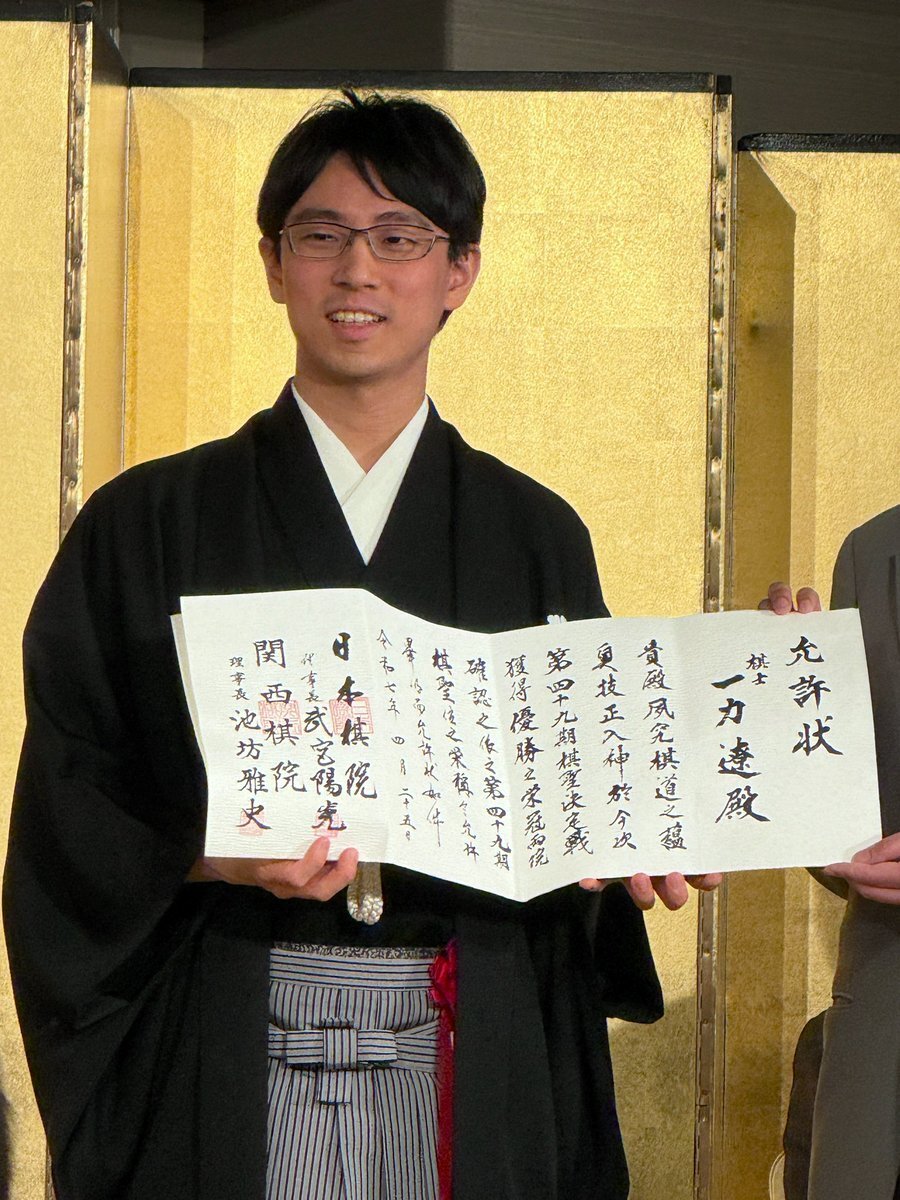 允許状
棋士
一力遼殿
貴殿夙究棋道之蘊
奥技正入神於今次
第四十九期棋聖決定戦
獲得優勝之栄冠両院
確認之依之第四十九期
棋聖位之栄称令允許
畢仍而允許状如件
令和七年 四月二十五日
日本棋院
理事長 武宮陽光
関西棋院
理事長 池坊雅史